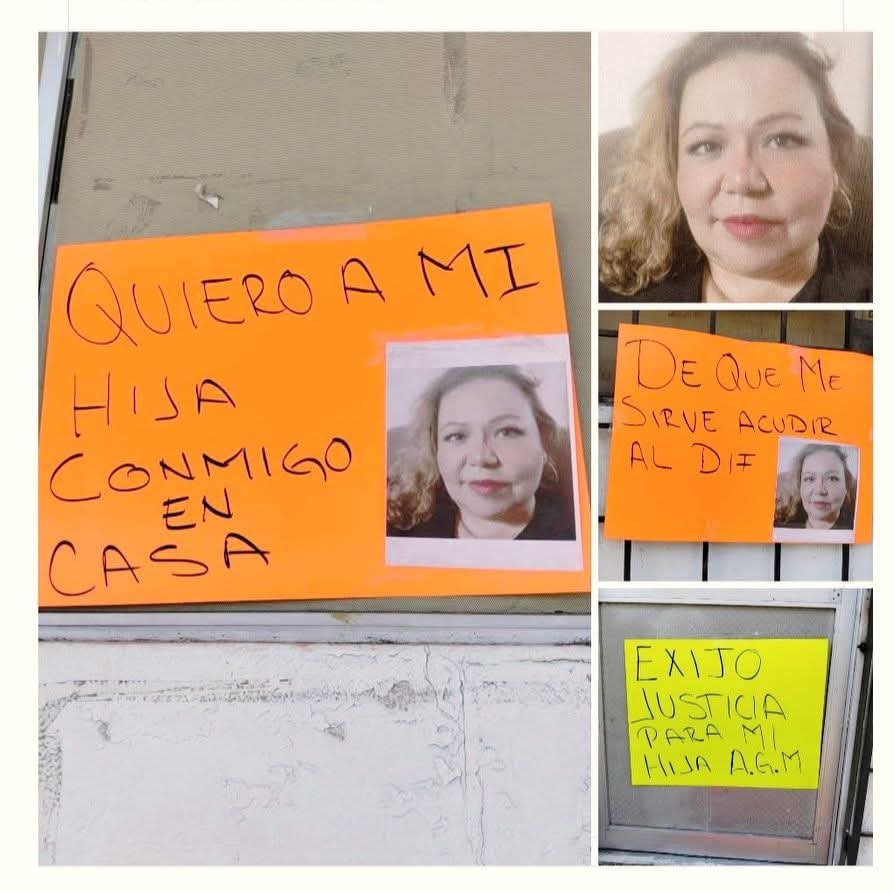 QUIERO A MI
HIJA
CONMIGO
EN
CASA
DE QUE ME
SIRVE ACUDIR
AL DIF
EXIJO
JUSTICIA
PARA MI
HIJA A.G.M